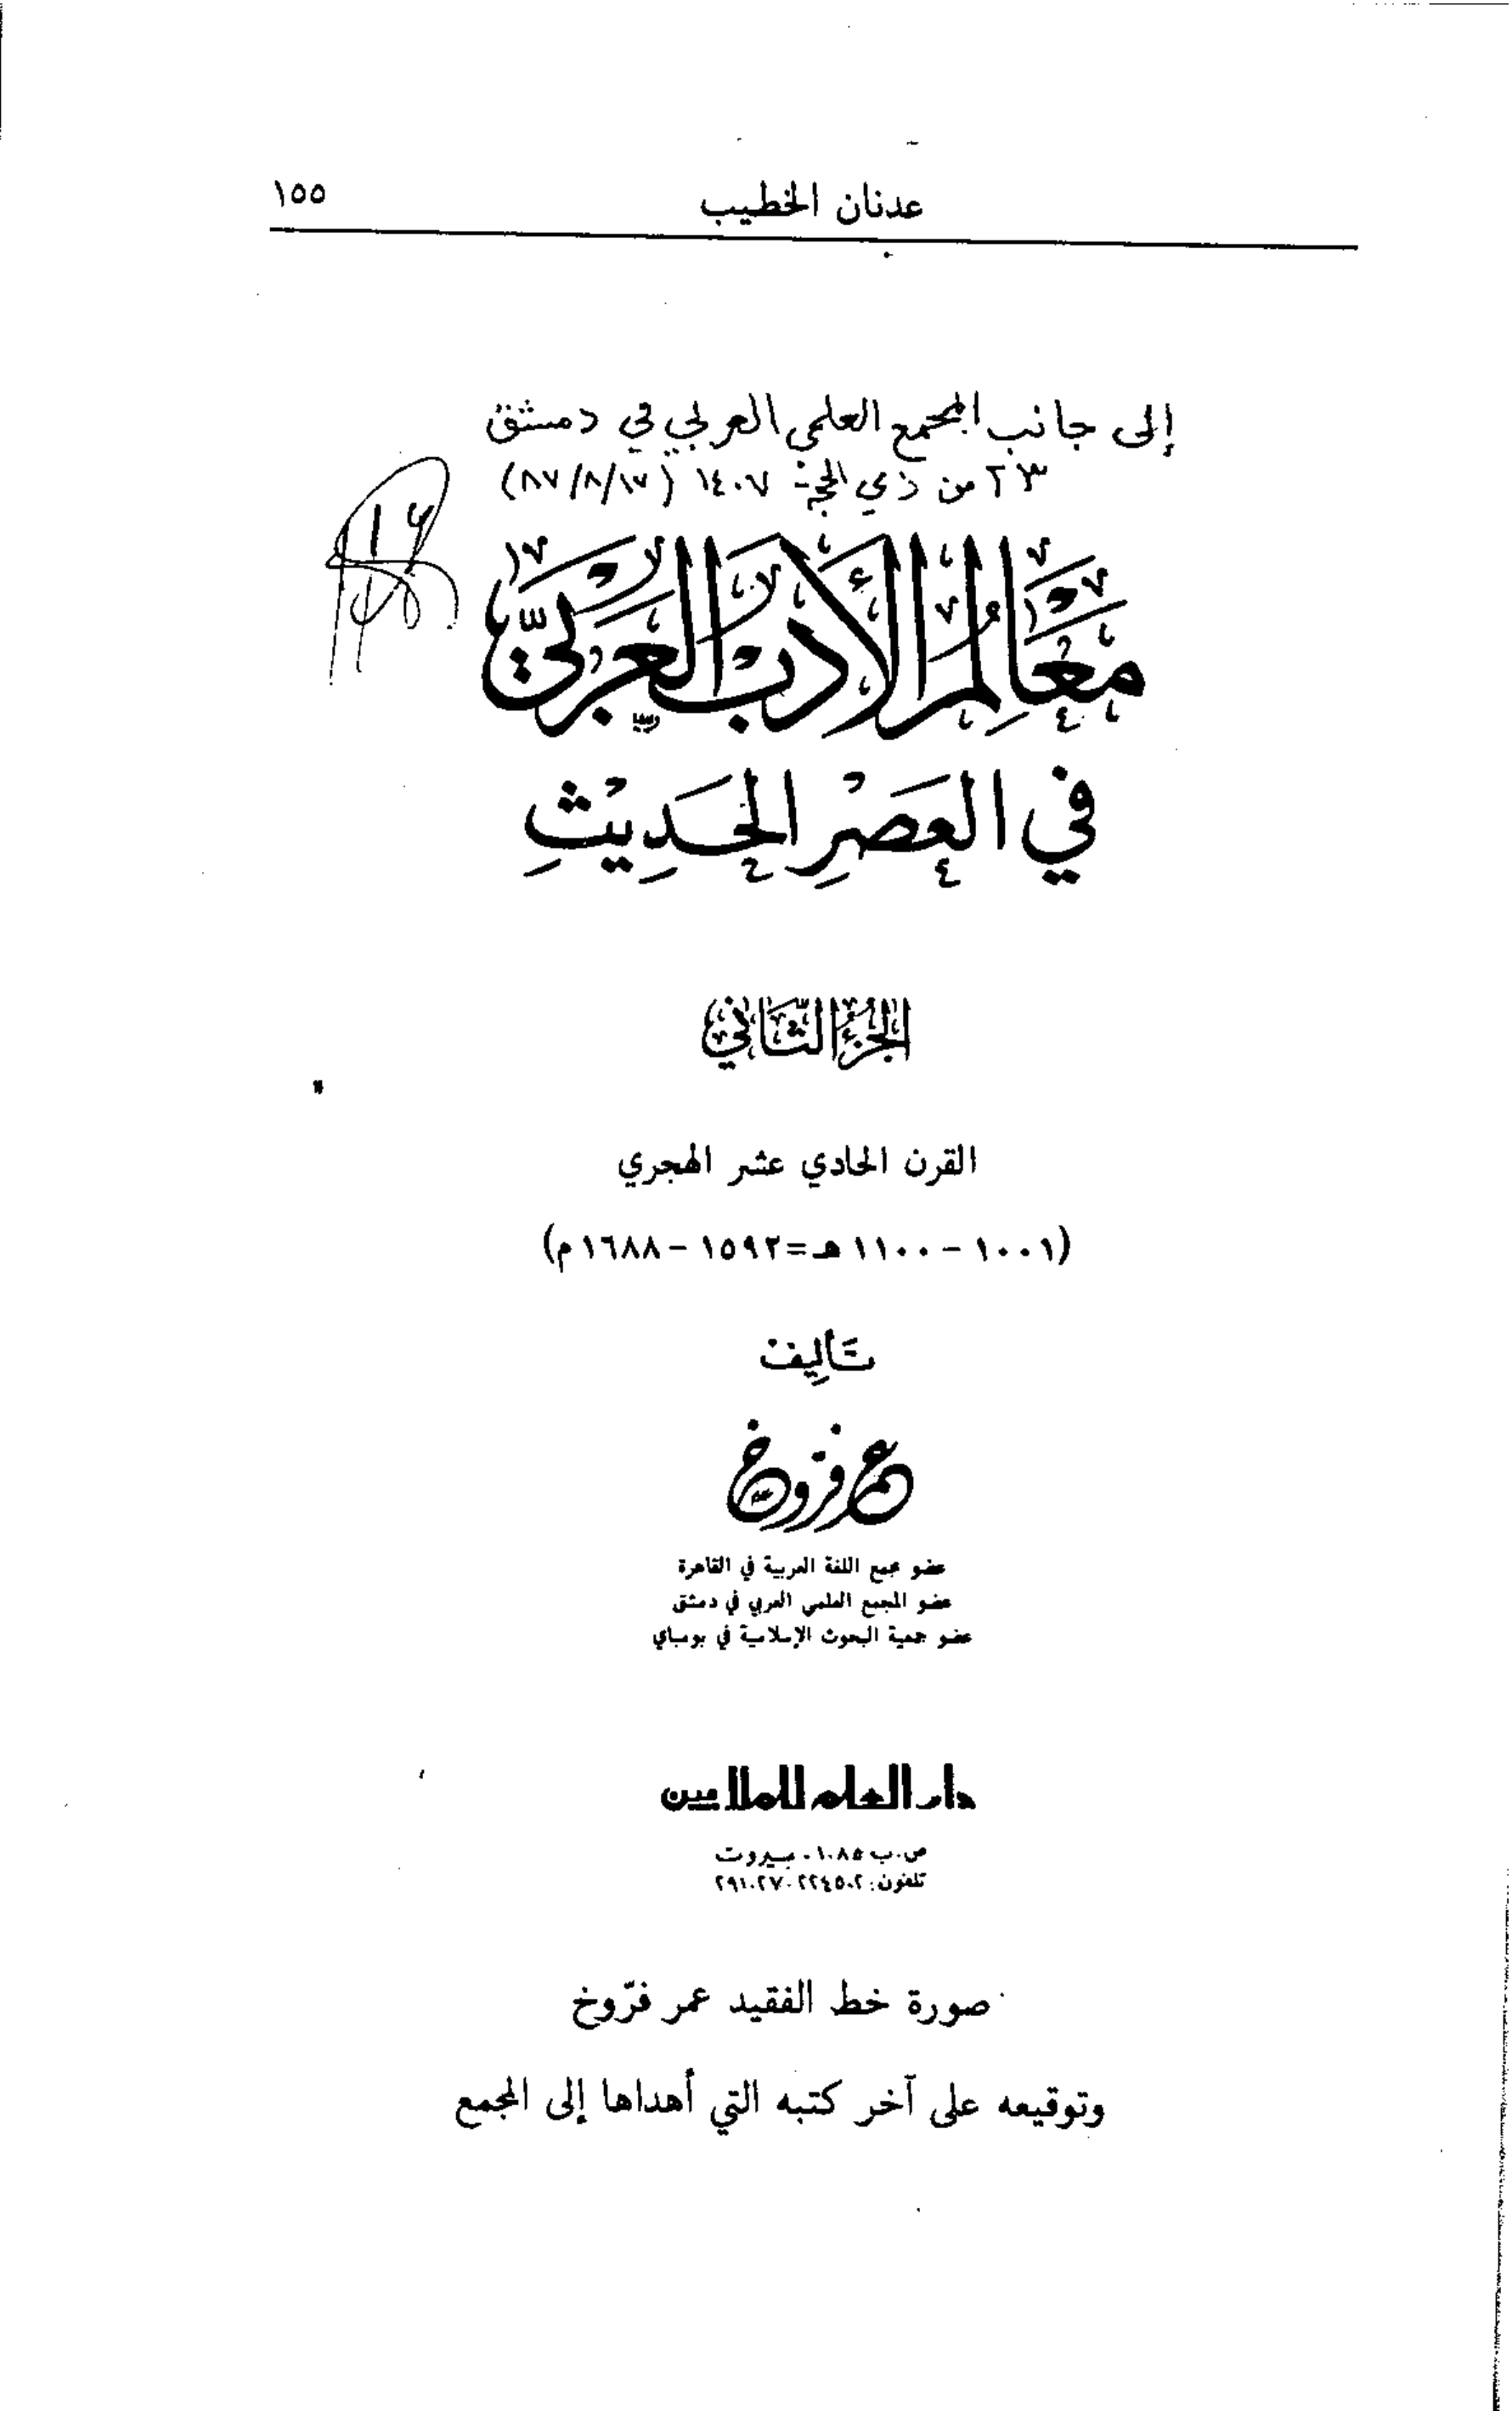 عدنان الخطيب ١٥٥
إلى جانب المجمع العلمي العربي في دمشق
٢٣ من ذي الحجة ١٤٠٧ (٨٧/٨/١٧)
مَعَالِمُ الأَدَبِ العَرَبِيّ
في العَصْرِ الحَدِيْثِ
الجُزءُ الثَّاني
القرن الحادي عشر الهجري
(١٠٠١ - ١١٠٠ هـ = ١٥٩٢ - ١٦٨٨ م)
تَأليف
عمر فروخ
عضو مجمع اللغة العربية في القاهرة
عضو المجمع العلمي العربي في دمشق
عضو جمعية البحوث الإسلامية في بومباي
دار العلم للملايين
ص.ب ١٠٨٥ - بيروت
تلفون: ٢٢٤٥٠٢ - ٢٩١٠٢٧
صورة خط الفقيد عمر فرّوخ
وتوقيعه على آخر كتبه التي أهداها إلى المجمع